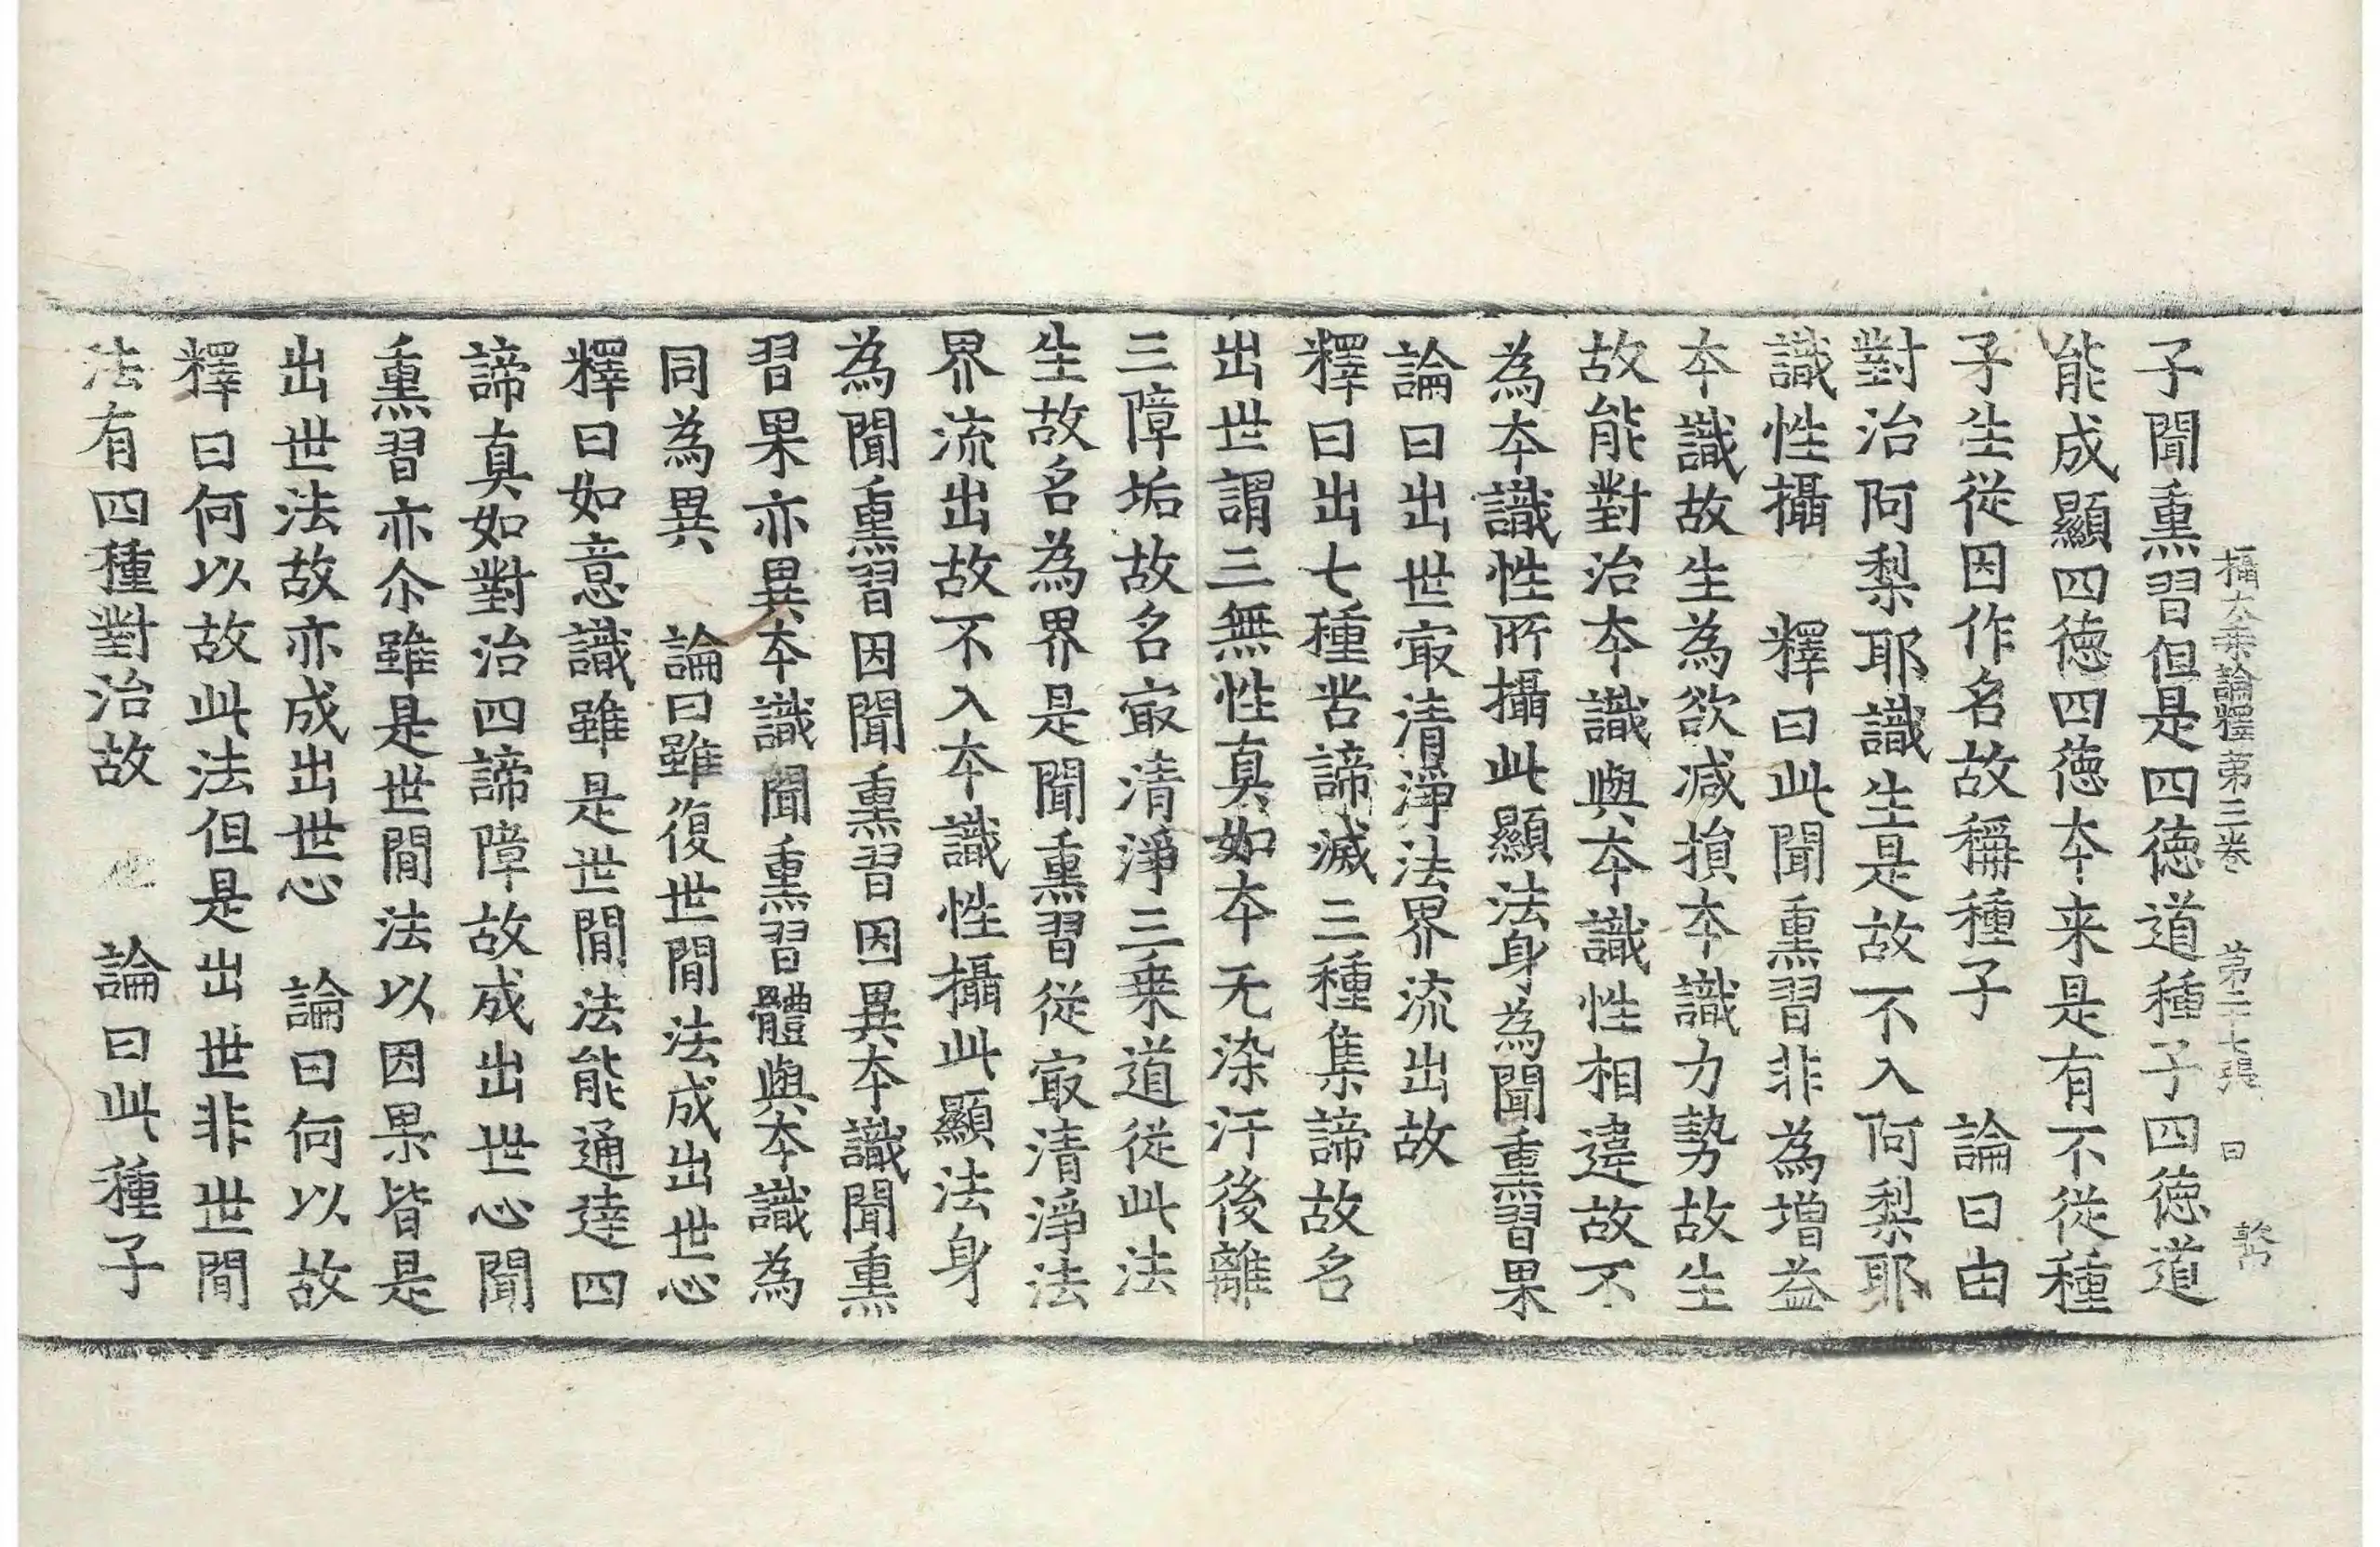 攝大乗論釋第三卷 第二十七張 曰
子聞熏習但是四徳道種子四徳道
能成顯四徳四徳本来是有不従種
子生従因作名故稱種子 論曰由
對治阿梨耶識生是故不入阿梨耶
識性攝 釋曰此聞熏習非為增益
本識故生為欲减損本識力勢故生
故能對治本識與本識性相違故不
為本識性所攝此顯法身為聞熏習果
論曰出世㝡清淨法界流出故
釋曰出七種苦諦滅三種集諦故名
出世謂三無性真如本无染汙後離
三障垢故名㝡清淨三乗道従此法
生故名為界是聞熏習従㝡清淨法
界流出故不入本識性攝此顯法身
為聞熏習因聞熏習因異本識聞熏
習果亦異本識聞熏習體與本識為
同為異 論曰雖復世閒法成出世心
釋曰如意識雖是世閒法能通達四
諦真如對治四諦障故成出世心聞
熏習亦尒雖是世閒法以因果皆是
出世法故亦成出世心 論曰何以故
釋曰何以故此法但是出世非世閒
法有四種對治故 論曰此種子